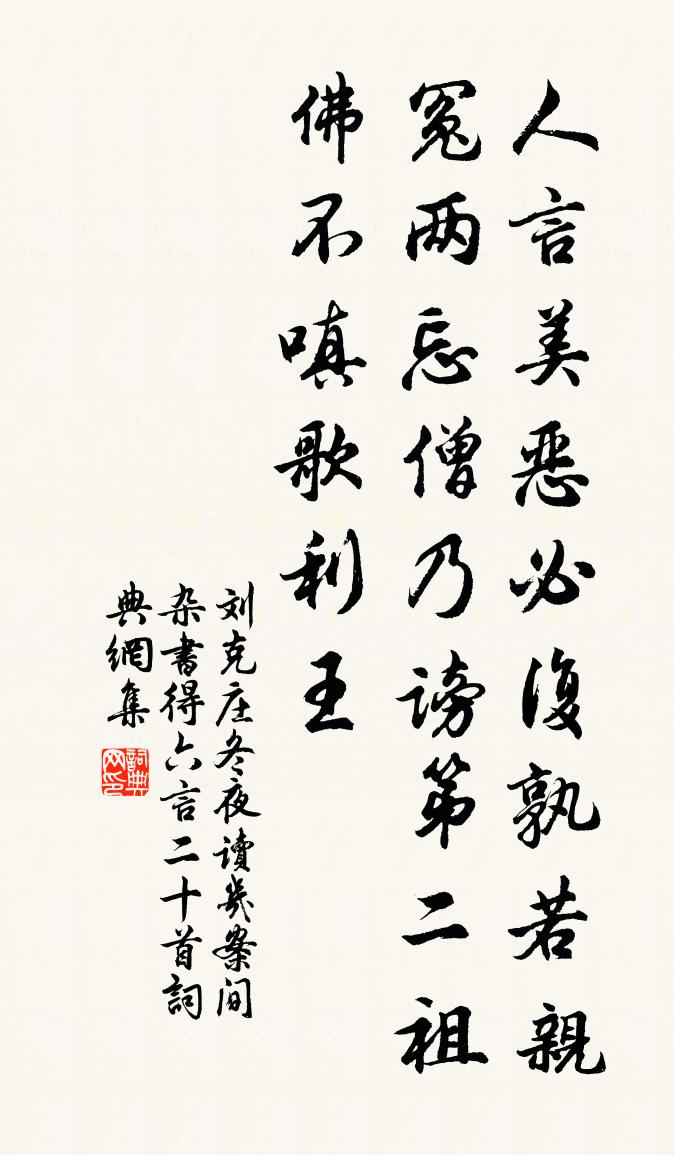 人言美惡必復孰若親
冤两忘僧乃謗第二祖
佛不嗔歌利王
刘克庄冬夜讀几案间
杂書得六言二十首詞
典網集
詞典网印